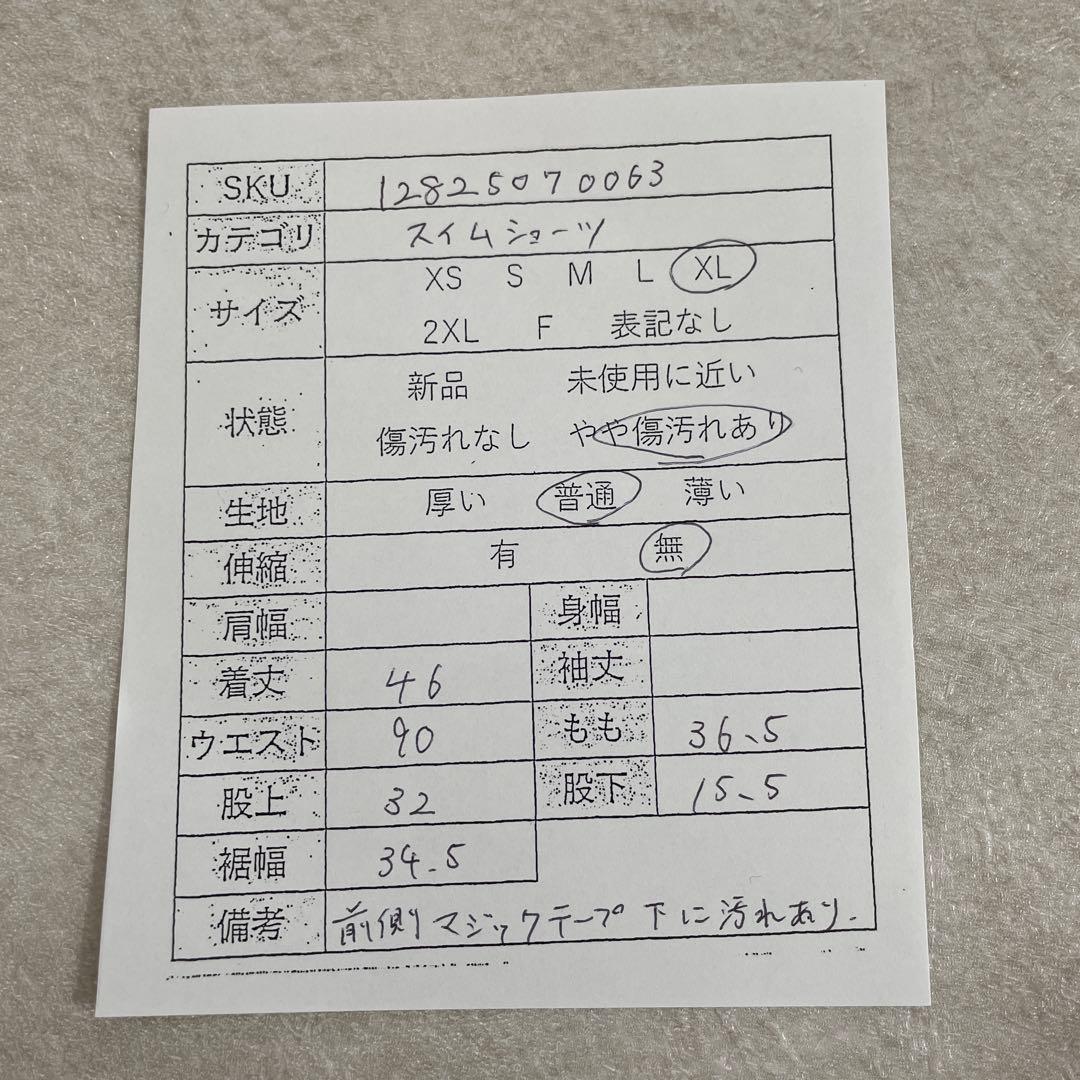 SKU 12825070063
カテゴリ スイムショーツ
サイズ XS S M L XL
2XL F 表記なし
状態 新品 未使用に近い
傷汚れなし やや傷汚れあり
生地 厚い 普通 薄い
伸縮 有 無
肩幅 身幅
着丈 46 袖丈
ウエスト 90 もも 36.5
股上 32 股下 15.5
裾幅 34.5
備考 前側マジックテープ下に汚れあり.